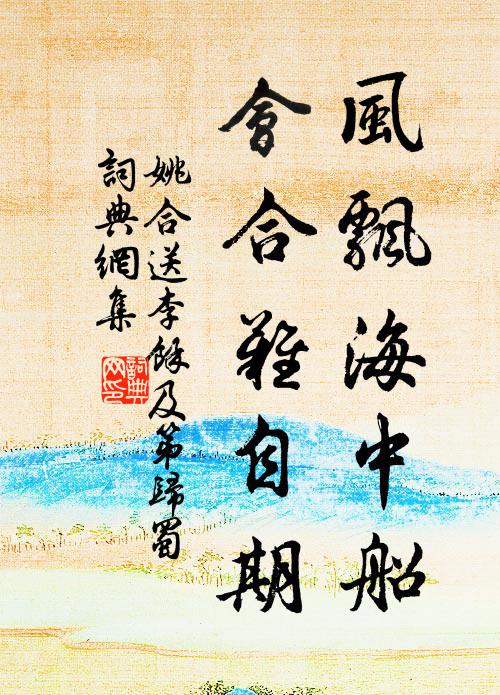 風飄海中船
會合難自期
姚合送李餘及第歸蜀
詞典網集
詞典
網印